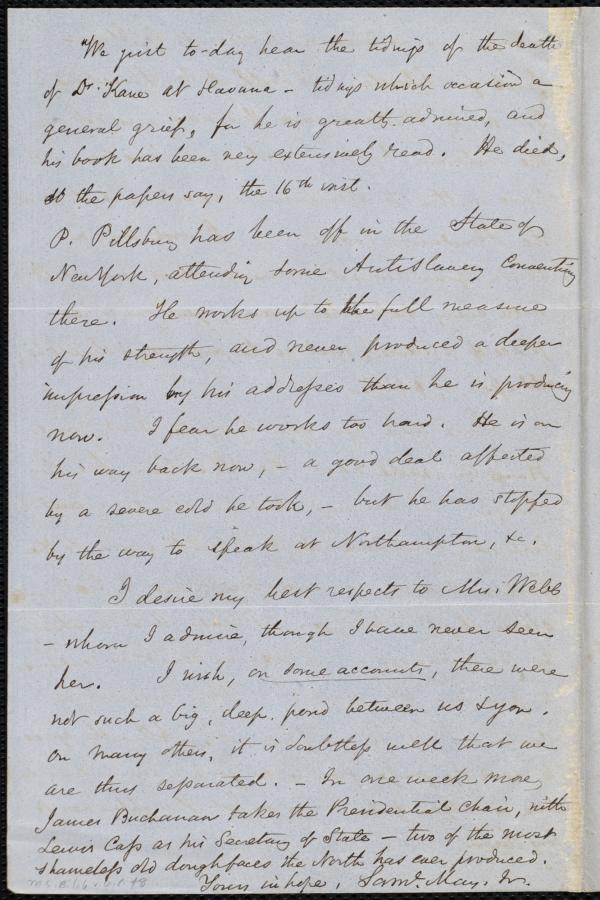 "We just to-day hear the tidings of the death
of Dr. Kane at Havana – tidings which occasion a
general grief, for he is greatly admired, and
his book has been very extensively read. He died,
so the papers say, the 16th inst.
P. Pillsbury has been off in the State of
New York, attending some Antislavery Conventions
there. He works up to the full measure
of his strength, and never produced a deeper
impression by his addresses than he is producing
now. I fear he works too hard. He is on
his way back now, – a good deal affected
by a severe cold he took, – but he has stopped
by the way to speak at Northampton, &c.
I desire my best respects to Mrs. Webb
– whom I admire, though I have never seen
her. I wish, on some accounts, there were
not such a big, deep pond between us & you.
On many others, it is doubtless well that we
are thus separated. – In one week more,
James Buchanan takes the Presidential Chair, with
Lewis Cass as his Secretary of State – two of the most
shameless old doughfaces the North has ever produced.
Yours in hope, Saml. May, Jr.